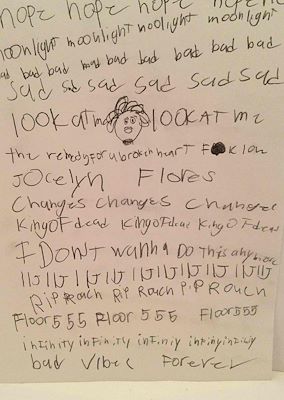 hope hope hope hope
moonlight moonlight moolight moonlight
bad bad bad bad bad bad bad bad
Sad Sad Sad Sad Sad Sad
look at me look AT me
the remedy for a broken heart
JOcelyn Flores
Changes changes changes
King OF dead King OF dead King OF dead
I DON'T wanna DO This anymore
Rip Roach Rip Roach Rip Roach
Floor 555 Floor 555 Floor 555
infinity infinity infiniy
bad Vibes Forever